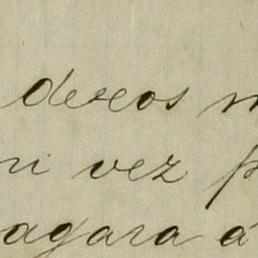 deseos
vez
agara á